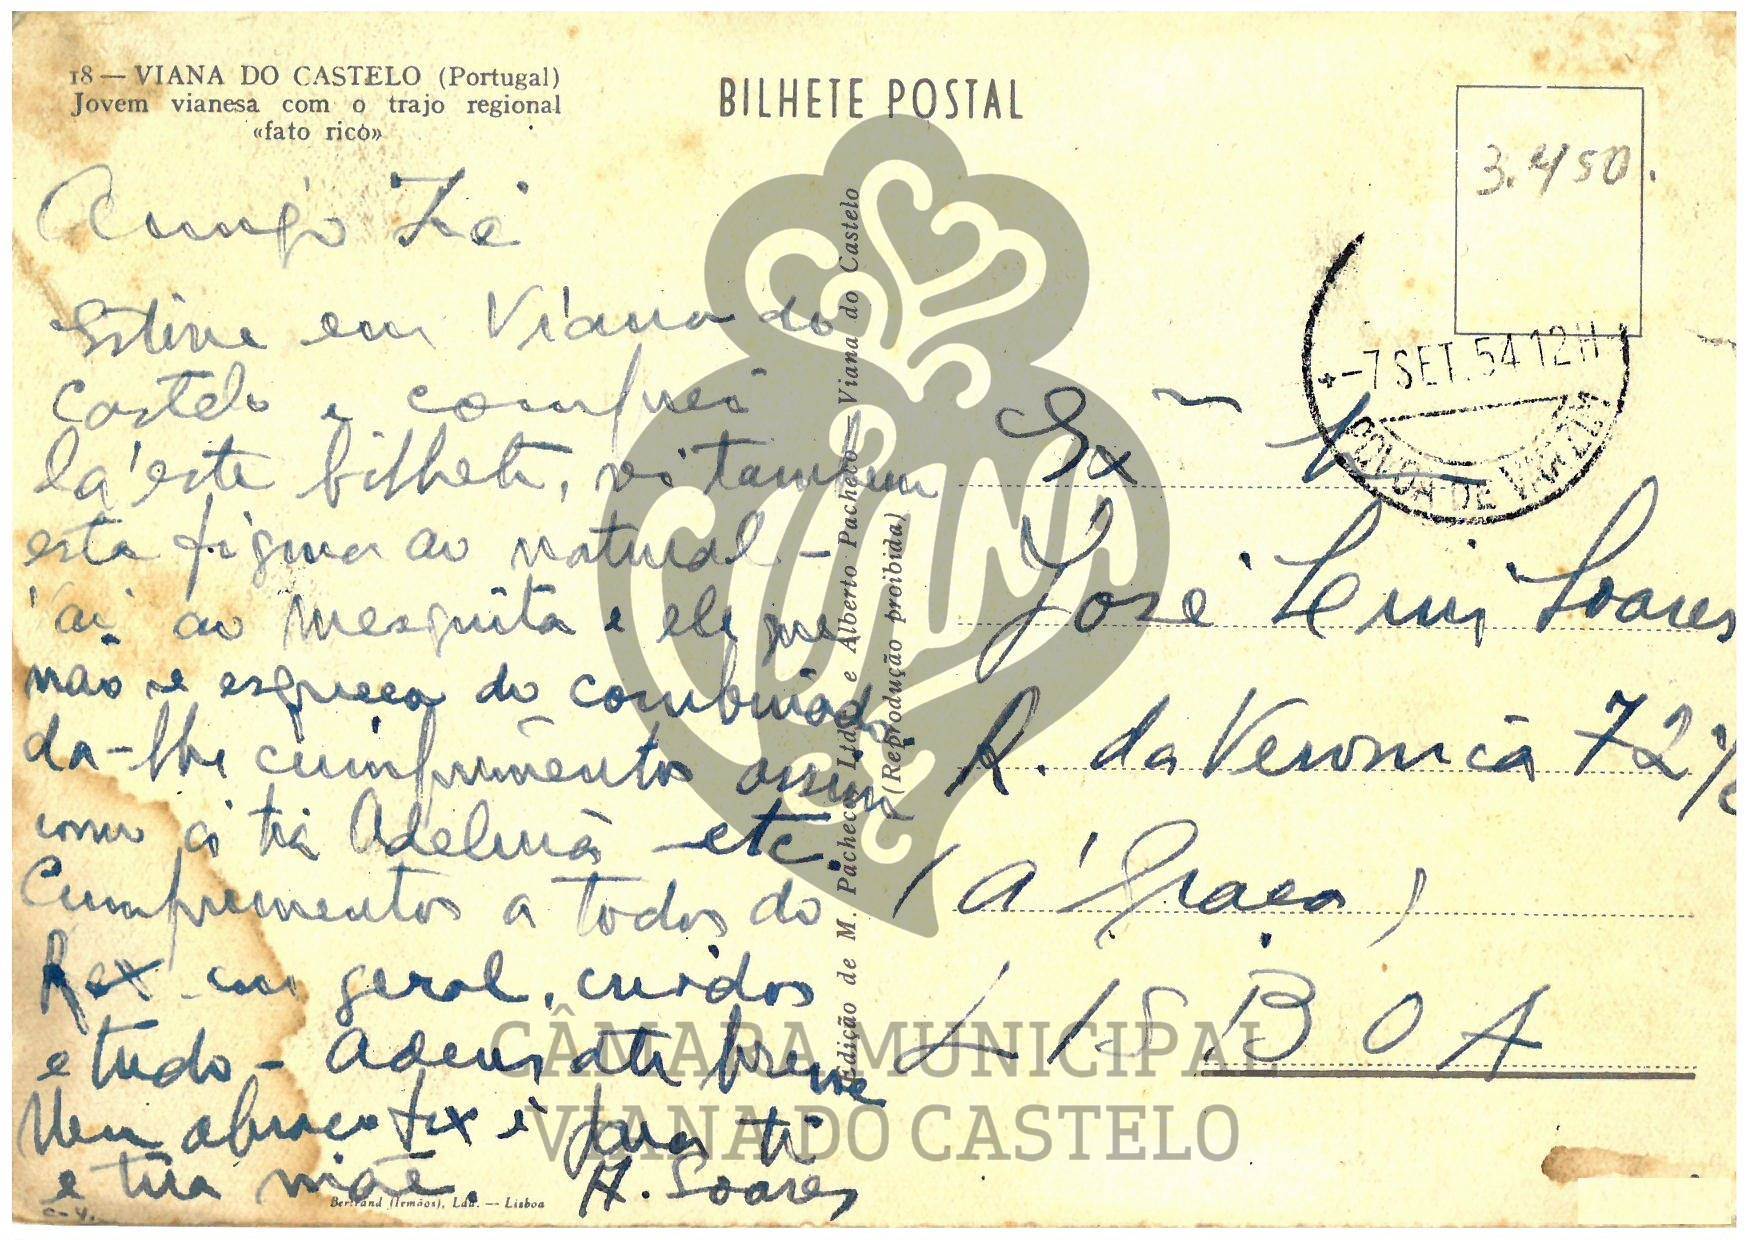 18 — VIANA DO CASTELO (Portugal)
Jovem vianesa com o trajo regional
«fato rico»
BILHETE POSTAL
3.450.
-7 SET. 54 12H
POVOA DE VARZIM
Amigo Zé
Estive em Viana do
Castelo e comprei
lá este bilhete, vi tambem
esta figura ao natural —
Vai ao Mesquita e ele que
não se esqueça do combinado
da-lhe cumprimentos assim
como á tia Adelina etc.
Cumprimentos a todos do
Rex em geral, cuidos
e tudo — Adeus até breve
Um abraço para ti
e tua mãe. A. Soares
Exmo
José Luis Soares
R. da Veronica 72
(á Graça)
LISBOA
Edição de M. Pacheco Ltd. e Alberto Pacheco — Viana do Castelo
(Reprodução proibida)
Bertrand (Irmãos), Lda. — Lisboa
c-4.
VIANA
CÂMARA MUNICIPAL
VIANA DO CASTELO